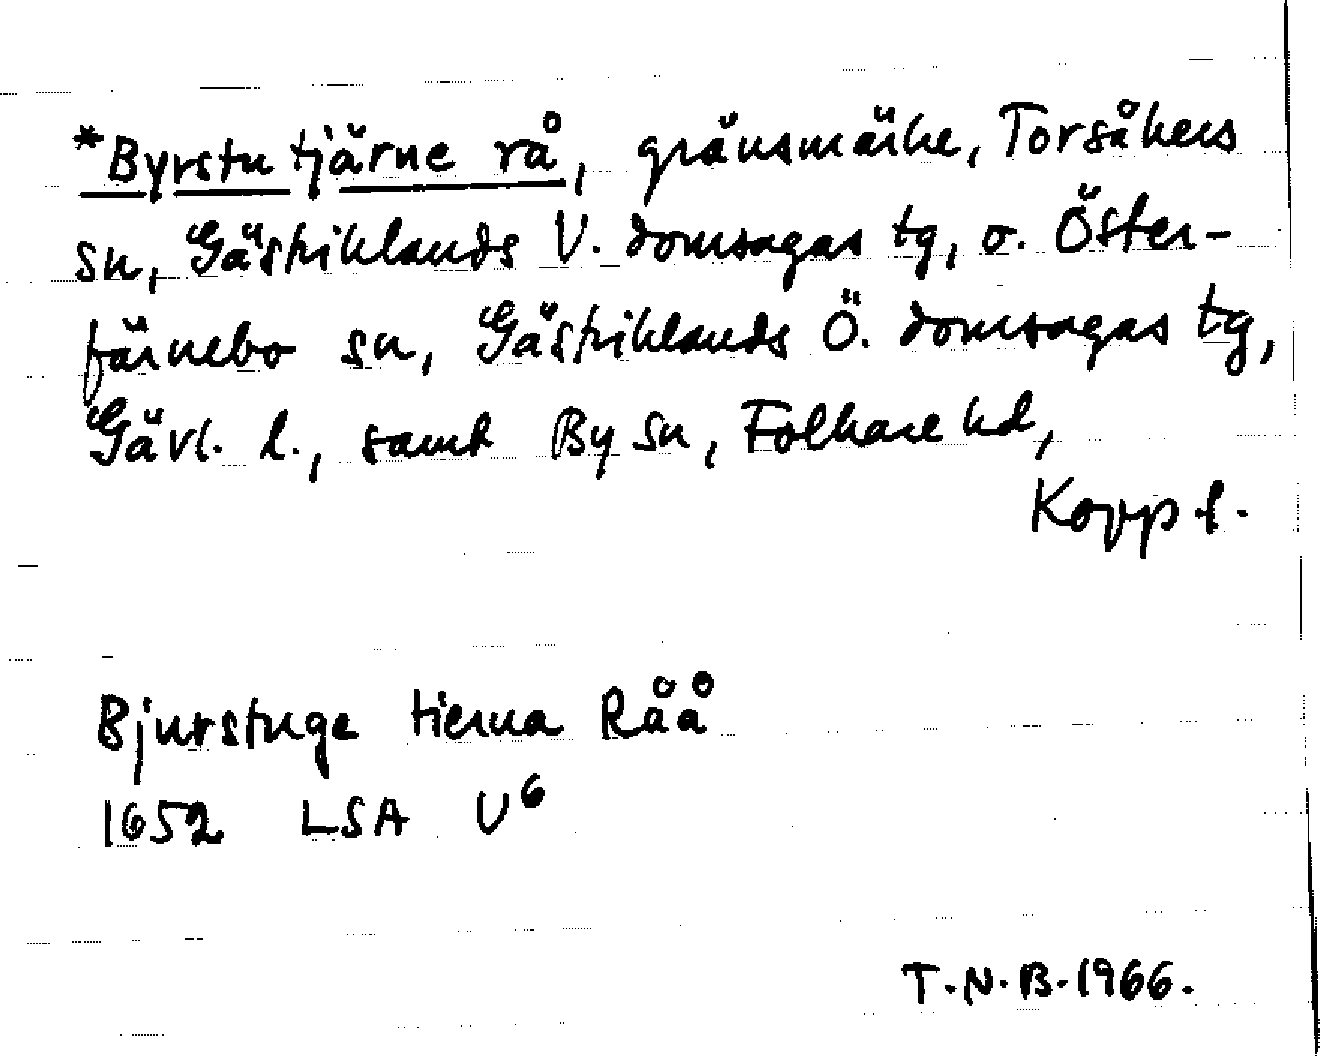 *Byrstutjärne rå, gränsmärke, Torsåkers
sn, Gästriklands V. domsagas tg, o. Öster-
färnebo sn, Gästriklands Ö. domsagas tg,
Gävl. l., samt By sn, Folkare hd,
Kopp l.
Bjurstuge tierna Råå
1652 LSA U⁶
T.N.B. 1966.